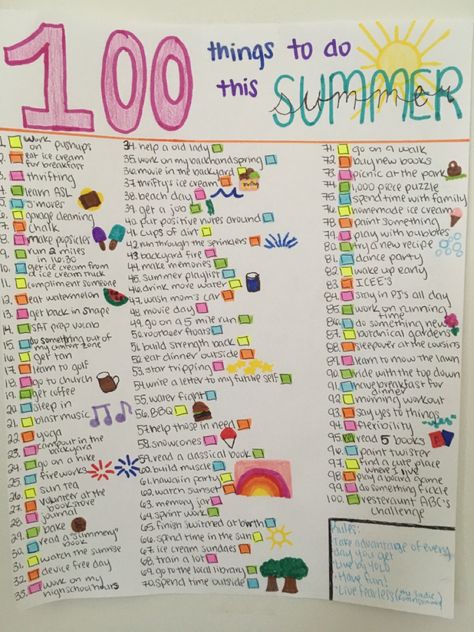 100 things to do
this SUMMER
summer
1. work on pushups
2. eat ice cream
for breakfast
3. thrifting
4. learn ASL
5. s'mores
6. garage cleaning
7. chalk
8. make popsicles
9. run 2 miles
10. get ice cream from
a ice cream truck
11. compliment someone
12. eat watermelon
13. get back in shape
14. SAT prep vocab
15. do something out of
my comfort zone
16. get tan
17. learn to golf
18. go to church
19. get coffee
20. sleep in
21. blast music
22. yoga
23. campout in the
backyard
24. go on a hike
25. fireworks
26. sun tea
27. volunteer at the
28. journal
29. bake
30. read a "summery"
book
31. watch the sunrise
32. device free day
33. work on my
highschool hours
34. help a old lady
35. work on my backhandspring
36. movie in the backyard
37. thrifty's ice cream
38. beach day
39. get a job
40. put positive notes around
41. cups of dirt
42. run through the sprinklers
43. backyard fire
44. make memories
45. summer playlist
46. drink more water
47. wash mom's car
48. movie day
49. go on a 5 mile run
50. rootbeer floats
51. build strength back
52. eat dinner outside
53. star tripping
54. write a letter to my future self
55. water fight
56. BBQ
57. help those in need
58. snowcones
59. read a classical book
60. build muscle
61. hawaiin party
62. watch sunset
63. memory jar
64. sprint work
65. finish switched at birth
66. spend time in the sun
67. ice cream sundaes
68. train a lot
69. go to the local library
70. spend time outside
71. go on a walk
72. buy new books
73. picnic at the park
74. 1,000 piece puzzle
75. spend time with family
76. homemade ice cream
78. paint something
79. play with bubbles
80. try a new recipe
81. dance party
82. wake up early
83. ICEE'S
84. stay in PJ'S all day
85. work on running
time
86. do something new
87. botanical gardens
88. sleepover at the cousins
89. learn to mow the lawn
90. ride with the top down
91. have breakfast for
dinner
92. morning workout
93. say yes to things
94. flexibility
95. read 5 books
96. paint twister
97. find a new place
98. play a board game
99. do something fickle
100. restaurant ABC's
challenge
Rules:
-Take advantage of every
day you get
-Live by YOLO
-Have fun!
-Live fearless